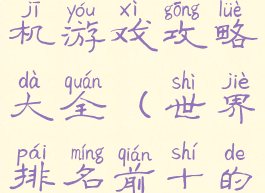 jī yóu xì gōng lüè
机游戏攻略
dà quán shì jiè
大全（世界
pái míng qián shí de
排名前十的